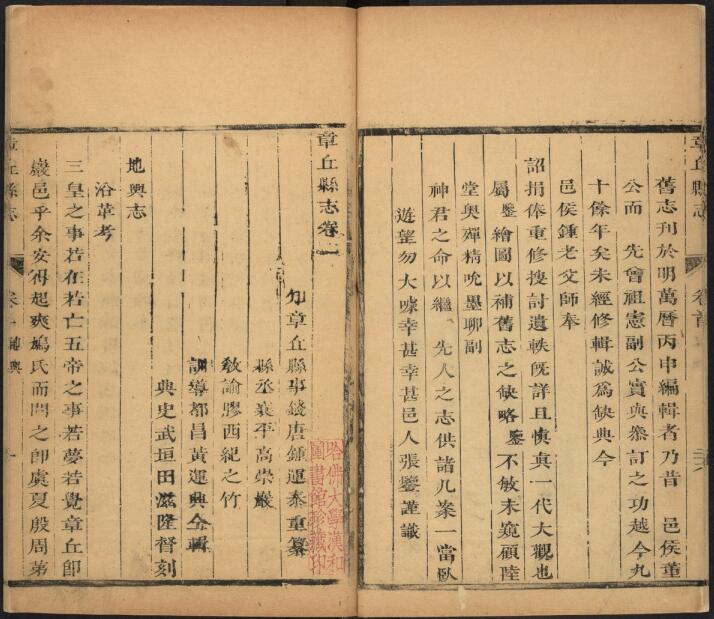 章丘縣志
卷首
舊志刊於明萬曆丙申編輯者乃昔　邑侯董
公而　先曾祖憲副公實與叅訂之功越今九
十餘年矣未經修輯誠為缺典今
邑侯鍾老父師奉
詔捐俸重修搜討遺軼旣詳且慎真一代大觀也
屬鑒繪圖以補舊志之缺略鑒不敏未窺顧陸
堂奥殫精吮墨聊副
神君之命以繼　先人之志供諸几案一當臥
遊望勿大噱幸甚幸甚邑人張鑒謹識
章丘縣志卷一
知章丘縣事錢唐鍾運泰重纂
縣丞襄平高崇巖
敎諭膠西紀之竹
訓導都昌黃運興仝輯
典史武垣田滋隆督刻
哈佛大學漢和
圖書館珍藏印
地輿志
沿革考
三皇之事若在若亡五帝之事若夢若覺章丘卽
巖邑乎余安得起爽鳩氏而問之卽虞夏殷周第
章丘縣志
卷一　輿
一